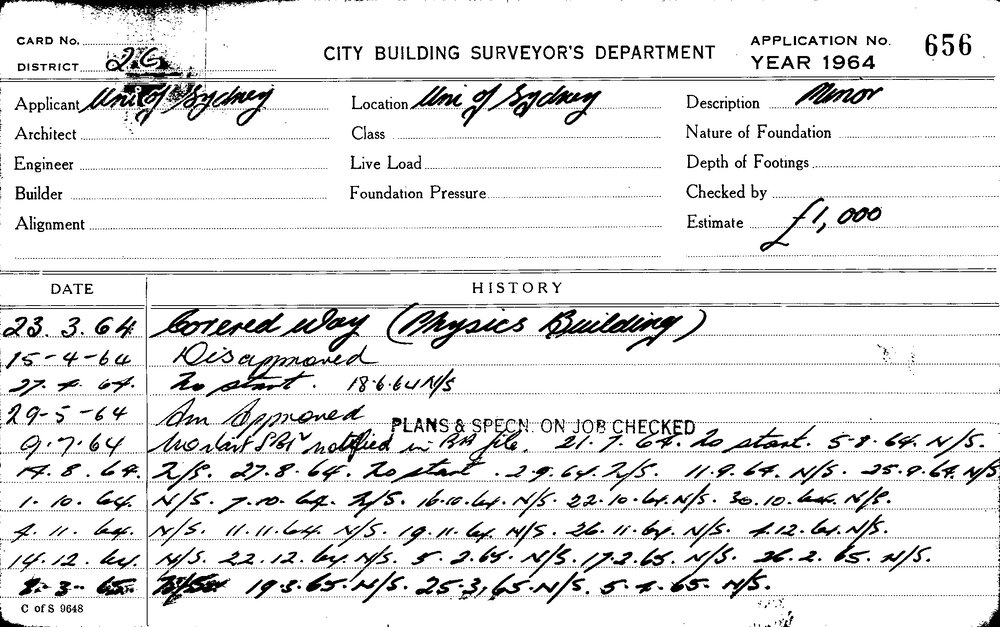 CARD No.
DISTRICT 2G
CITY BUILDING SURVEYOR'S DEPARTMENT
APPLICATION No. 656
YEAR 1964
Applicant Uni of Sydney
Location Uni of Sydney
Description Minor
Architect
Class
Nature of Foundation
Engineer
Live Load
Depth of Footings
Builder
Foundation Pressure
Checked by
Alignment
Estimate £1,000
DATE HISTORY
23.3.64 Covered Way (Physics Building)
15-4-64 Disapproved
27.4.64. No start. 18.6.64 N/S
29-5-64 Am Approved
PLANS & SPECN. ON JOB CHECKED
9.7.64 notified in file. 21.7.64. No start. 5.8.64. N/S.
14.8.64. N/S. 27.8.64. No start. 2.9.64. N/S. 11.9.64. N/S. 25.9.64. N/S
1.10.64. N/S. 7.10.64. N/S. 16.10.64. N/S. 22.10.64. N/S. 30.10.64. N/S.
4.11.64. N/S. 11.11.64. N/S. 19.11.64. N/S. 26.11.64. N/S. 4.12.64. N/S.
14.12.64. N/S. 22.12.64. N/S. 5.2.65. N/S. 17.2.65. N/S. 26.2.65. N/S.
8.3.65. N/S. 19.3.65. N/S. 25.3.65. N/S. 5.4.65. N/S.
C of S 9648